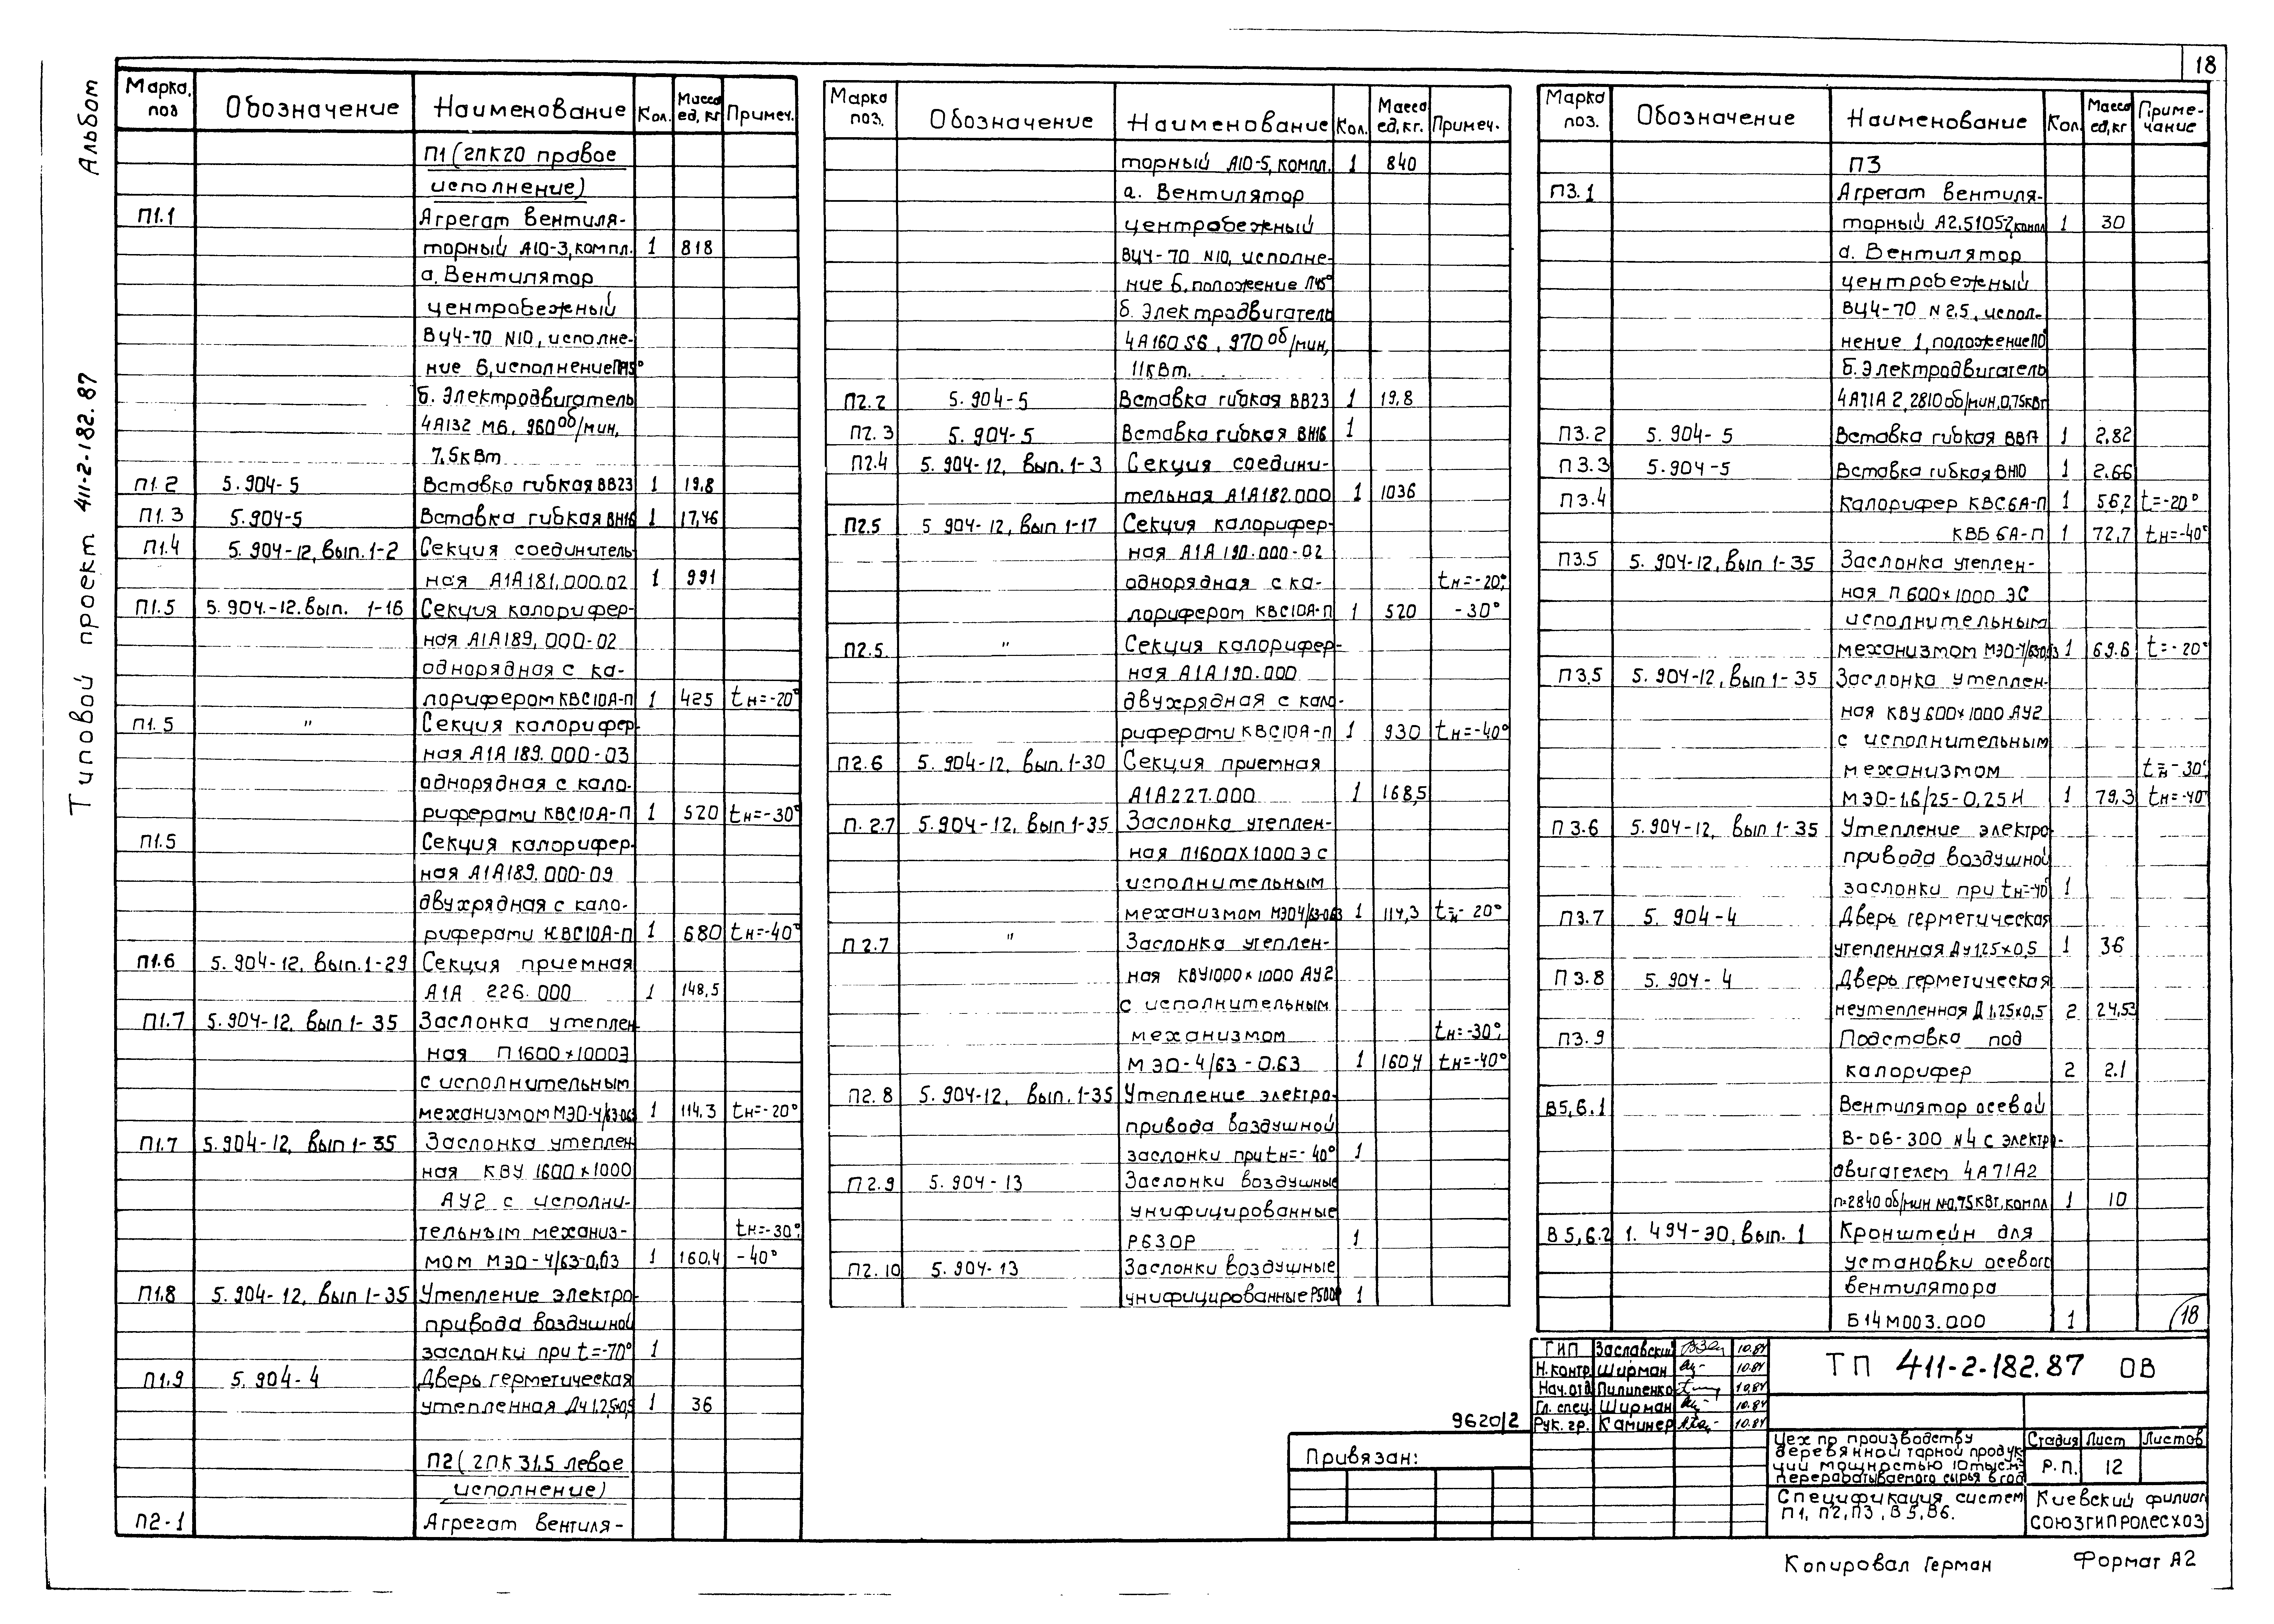 18
Альбом
Типовой проект 411-2-182.87
Марка, поз Обозначение Наименование Кол. Масса ед, кг Примеч.
П1 (2ПК20 правое
исполнение)
П1.1 Агрегат вентиля-
торный А10-3, компл. 1 818
а. Вентилятор
центробежный
ВЦ4-70 N10, исполне-
ние 6, исполнение
б. Электродвигатель
4А132 М6, 960 об/мин,
7,5кВт
П1.2 5.904-5 Вставка гибкая ВВ23 1 19,8
П1.3 5.904-5 Вставка гибкая ВН16 1 17,46
П1.4 5.904-12, вып.1-2 Секция соединитель-
ная А1А181.000.02 1 991
П1.5 5.904.-12.вып. 1-16 Секция калорифер-
ная А1А189.000-02
однорядная с ка-
лорифером КВС10А-П 1 425 tн=-20°
П1.5 " Секция калорифер-
ная А1А189.000-03
однорядная с кало-
риферами КВС10А-П 1 520 tн=-30°
П1.5 Секция калорифер-
ная А1А189.000-09
двухрядная с кало-
риферами КВС10А-П 1 680 tн=-40°
П1.6 5.904-12, вып.1-29 Секция приемная
А1А 226.000 1 148,5
П1.7 5.904-12, вып 1-35 Заслонка утеплен
ная П1600×1000Э
с исполнительным
механизмом МЭО-4/63-0.63 1 114.3 tн=-20°
П1.7 5.904-12, вып 1-35 Заслонка утеплен-
ная КВУ 1600×1000
АУ2 с исполни-
тельным механиз- tн=-30°,
мом МЭО-4/63-0,63 1 160,4 -40°
П1.8 5.904-12, вып 1-35 Утепление электро-
привода воздушной
заслонки при t=-70° 1
П1.9 5.904-4 Дверь герметическая
утепленная Ду1,25×0,5 1 36
П2 (2ПК 31.5 левое
исполнение)
П2-1 Агрегат вентиля-
Марка поз. Обозначение Наименование Кол. Масса ед, кг. Примеч.
торный А10-5, компл. 1 840
а. Вентилятор
центробежный
ВЦ4-70 N10, исполне-
ние 6, положение Л45°
б. Электродвигатель
4А160 S6, 970 об/мин,
11кВт.
П2.2 5.904-5 Вставка гибкая ВВ23 1 19,8
П2.3 5.904-5 Вставка гибкая ВН16 1
П2.4 5.904-12, вып.1-3 Секция соедини-
тельная А1А182.000 1 1036
П2.5 5.904-12, вып 1-17 Секция калорифер-
ная А1А190.000-02
однорядная с ка- tн=-20°,
лорифером КВС10А-П 1 520 -30°
П2.5 " Секция калорифер-
ная А1А190.000
двухрядная с кало-
риферами КВС10А-П 1 930 tн=-40°
П2.6 5.904-12, вып.1-30 Секция приемная
А1А227.000 1 168,5
П.2.7 5.904-12, вып 1-35 Заслонка утеплен-
ная П1600×1000 Э с
исполнительным
механизмом МЭО4/63-0.63 1 114,3 tн=-20°
П2.7 " Заслонка утеплен-
ная КВУ1000×1000 АУ2
с исполнительным
механизмом tн=-30°,
МЭО-4/63-0.63 1 160,4 tн=-40°
П2.8 5.904-12, вып.1-35 Утепление электро-
привода воздушной
заслонки при tн=-40° 1
П2.9 5.904-13 Заслонки воздушные
унифицированные
Р630Р 1
П2.10 5.904-13 Заслонки воздушные
унифицированные Р500Р 1
Марка поз. Обозначение Наименование Кол. Масса ед, кг Приме-чание
П3
П3.1 Агрегат вентиля-
торный А2,5105-2, компл 1 30
а. Вентилятор
центробежный
ВЦ4-70 N2.5, испол-
нение 1, положение П0°
б. Электродвигатель
4А71А2, 2810 об/мин, 0,75кВт
П3.2 5.904-5 Вставка гибкая ВВ17 1 2,82
П3.3 5.904-5 Вставка гибкая ВН10 1 2.66
П3.4 Калорифер КВС6А-П 1 56,2 t=-20°
КВБ 6А-П 1 72,7 tн=-40°
П3.5 5.904-12, вып 1-35 Заслонка утеплен-
ная П 600×1000 ЭС
исполнительным
механизмом МЭО-4/63-0,63 1 69.6 t=-20°
П3.5 5.904-12, вып 1-35 Заслонка утеплен-
ная КВУ 600×1000 АУ2
с исполнительным
механизмом tн=-30°,
МЭО-1,6/25-0,25И 1 79,3 tн=-40°
П3.6 5.904-12, вып 1-35 Утепление электро-
привода воздушной
заслонки при tн=-40° 1
П3.7 5.904-4 Дверь герметическая
утепленная Ду1,25×0,5 1 36
П3.8 5.904-4 Дверь герметическая
неутепленная Д 1,25×0,5 2 24,53
П3.9 Подставка под
калорифер 2 2.1
В5,6.1 Вентилятор осевой
В-06-300 N4 с электро-
двигателем 4А71А2
n=2840 об/мин N=0,75кВт, компл 1 10
В5,6.2 1.494-30, вып.1 Кронштейн для
установки осевого
вентилятора
Б14М003.000 1
18
ГИП Заславский 10.87
Н.контр Ширман 10.87
Нач.отд Пилипенко 10.87
Гл. спец. Ширман 10.87
Рук. гр. Каминер 10.87
9620/2
Привязан:
ТП 411-2-182.87 ОВ
Цех по производству
деревянной тарной продук-
ции мощностью 10тыс.м³
перерабатываемого сырья в год
Стадия Лист Листов
Р.П. 12
Спецификация систем
П1, П2, П3, В5, В6.
Киевский филиал
СОЮЗГИПРОЛЕСХОЗ
Копировал Герман Формат А2